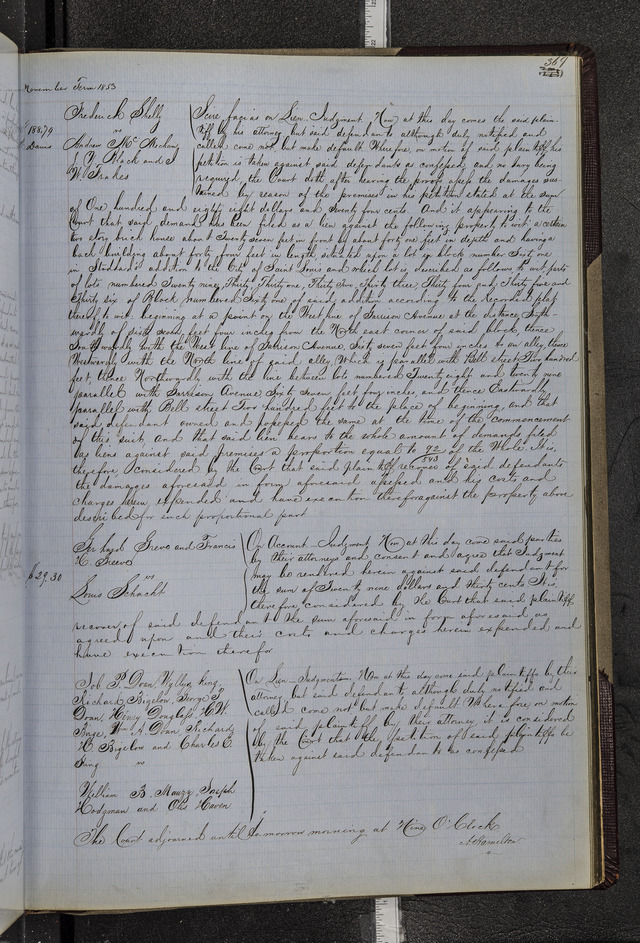 369
November Term 1853
Frederick Shelly
vs
Andrew Mc
J. Y. Black and J
W.
188.74
Scire facias on Lien. Judgment. Now at this day comes the said plain-
tiff by his attorney but said defendants although duly notified and
called come not, but make default Wherefore, on motion of said plaintiff his
petition is taken against said defendants as confessed, and no Jury being
required, the Court doth after hearing the proof assess the damages sus-
tained by reason of the premises in his petition stated at the sum
of One hundred and eighty eight dollars and Seventy four cents. And it appearing to the
Court that said demand has been filed as a lien against the following property to wit: a certain
two story brick house about Twenty seven feet in front by about forty one feet in depth and having a
back building about forty four feet in length, situated upon a lot in block number Sixty one
in Stoddard addition to the City of Saint Louis and which lot is described as follows, to wit, parts
of lots numbered Twenty nine, Thirty, Thirty one, Thirty Two, Thirty three, Thirty four, Thirty five and
Thirty six of Block numbered Sixty one of said addition according to the Recorded plat
thereof to wit: beginning at a point on the West line of Garrison Avenue at the distance South-
wardly of feet four inches from the North east corner of said block, thence
Southwardly with the West line of Garrison Avenue Sixty seven feet four inches to an alley, thence
Westwardly with the North line of said alley, which is parallel with Bell street, Two hundred
feet, thence Northwardly with the line between lots numbered Twenty eight and twenty nine
parallel with Garrison Avenue Sixty seven feet four inches and thence Eastwardly
parallel with Bell street Two hundred feet to the place of beginning, and that
said defendant owned and possessed the same at the time of the commencement
of this suit, and that said lien bears to the whole amount of demands filed
as liens against said premises a proportion equal to of the Whole. It is
therefore considered by the Court that said plaintiff recover of said defendants
the damages aforesaid in form aforesaid assessed and his costs and
charges herein expended and have execution therefor against the property above
described for such proportional part
Grevo and Francis
Grevo
vs
Louis Schacht
$29.30
On Account. Judgment. Now at this day come said parties
by their attorneys and consent and agree that Judgment
may be rendered herein against said defendant for
the sum of Twenty nine dollars and thirty cents. It is
therefore considered by the Court that said plaintiffs
recover of said defendant the sum aforesaid in form aforesaid as
agreed upon and their costs and charges herein expended, and
have execution therefor
Job P. Doan, Wyllys King,
Richard Bigelow, George P.
Doan, Henry Douglass, E. W.
Page, Wm A. Doan, Richards
H. Bigelow and Charles E.
King vs
William B. Mauzy, Joseph
Hodgman and Otis Haven
On Lien. Judgment. Now at this day come said plaintiffs by their
attorney but said defendants, although duly notified and
called come not but make default Wherefore, on motion
of said plaintiffs by their attorney it is considered
by the Court that the petition of said plaintiffs be
taken against said defendants as confessed
The Court adjourned until tomorrow morning at Nine O'Clock
A Hamilton